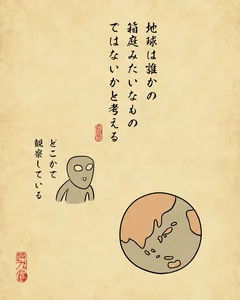 地球は誰かの
箱庭みたいなもの
ではないかと考える
どこかで
観察している